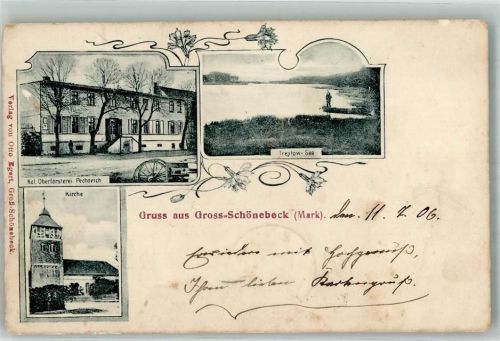 Verlag von Otto Egert, Groß-Schönebeck.
Kgl. Oberförsterei Pechteich
Treptow-See
Kirche
Gruss aus Gross-Schönebeck (Mark). den 11. 7. 06.
Erwidere mit Hochgenuß,
Ihren lieben Kartengruß.